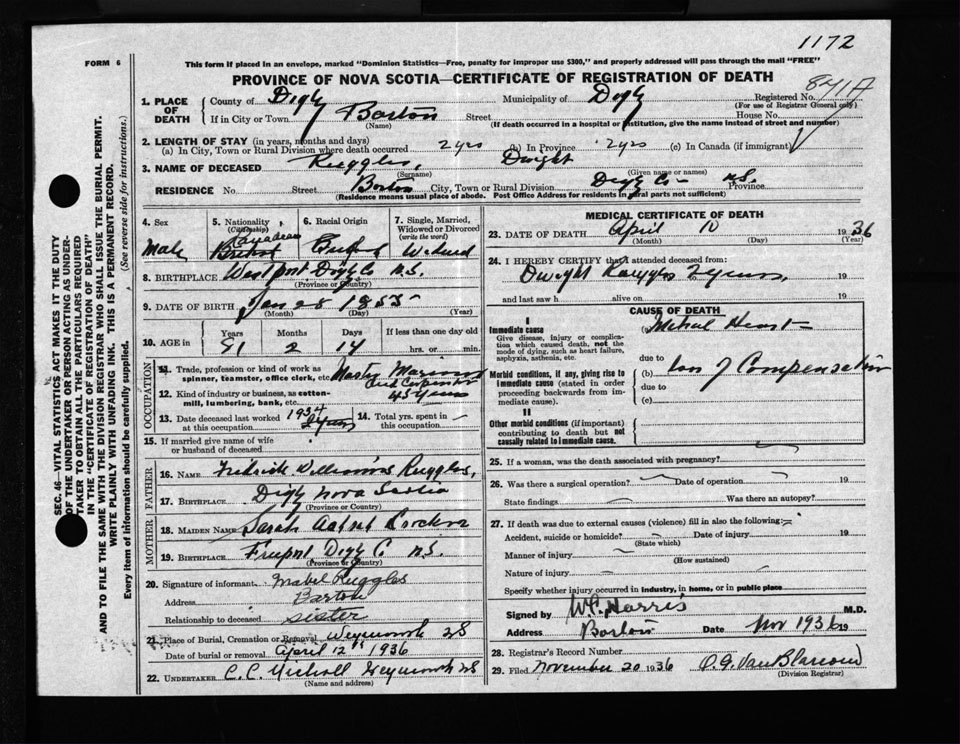 1172
FORM 6
This form if placed in an envelope, marked "Dominion Statistics—Free, penalty for improper use $300," and properly addressed will pass through the mail "FREE"
PROVINCE OF NOVA SCOTIA—CERTIFICATE OF REGISTRATION OF DEATH
841A
1. PLACE OF DEATH County of Digby Municipality of Digby Registered No.
(For use of Registrar General only)
If in City or Town Barton Street House No.
(Name) (If death occurred in a hospital or institution, give the name instead of street and number)
2. LENGTH OF STAY (in years, months and days)
(a) In City, Town or Rural Division where death occurred 2 yrs (b) In Province 2 yrs (c) In Canada (if immigrant)
3. NAME OF DECEASED Ruggles, Dwight
(Surname) (Given name or names)
RESIDENCE No Street Barton City, Town or Rural Division Digby Co— N.S. Province
(Residence means usual place of abode. Post Office Address for residents in rural parts not sufficient)
4. Sex
Male
5. Nationality
(Citizenship)
Canadian
British
6. Racial Origin
7. Single, Married, Widowed or Divorced
(write the word)
8. BIRTHPLACE Westport Digby Co N.S.
(Province or Country)
9. DATE OF BIRTH Jan 28 1855
(Month) (Day) (Year)
10. AGE in Years Months Days If less than one day old
81 2 14 hrs. or min.
OCCUPATION
11. Trade, profession or kind of work as spinner, teamster, office clerk, etc. Master Mariner
and Carpenter
12. Kind of industry or business, as cotton-mill, lumbering, bank, etc. 45 years
13. Date deceased last worked at this occupation 1934 2 years
14. Total yrs. spent in this occupation
15. If married give name of wife or husband of deceased
FATHER
16. NAME Fredrick Williams Ruggles,
17. BIRTHPLACE Digby Nova Scotia
(Province or Country)
MOTHER
18. MAIDEN NAME Sarah
19. BIRTHPLACE Freeport Digby C. N.S.
(Province or Country)
20. Signature of informant Mabel Ruggles
Address Barton
Relationship to deceased sister
21. Place of Burial, Cremation or Removal Weymouth NS
Date of burial or removal April 12th 1936
22. UNDERTAKER C. C. Weymouth NS
(Name and address)
MEDICAL CERTIFICATE OF DEATH
23. DATE OF DEATH April 10 1936
(Month) (Day) (Year)
24. I HEREBY CERTIFY that I attended deceased from:
Dwight Ruggles 2 years, 19
and last saw h alive on 19
CAUSE OF DEATH
I
Immediate cause
Give disease, injury or complication which caused death, not the mode of dying, such as heart failure, asphyxia, asthenia, etc.
(a) Mitral Heart
due to
Morbid conditions, if any, giving rise to immediate cause (stated in order proceeding backwards from immediate cause).
(b) Loss of Compensation
due to
(c)
II
Other morbid conditions (if important) contributing to death but not causally related to immediate cause.
25. If a woman, was the death associated with pregnancy?
26. Was there a surgical operation? Date of operation 19
State findings Was there an autopsy?
27. If death was due to external causes (violence) fill in also the following:
Accident, suicide or homicide? Date of injury 19
(State which)
Manner of injury
(How sustained)
Nature of injury
Specify whether injury occurred in industry, in home, or in public place
Signed by W.F. Harris M.D.
Address Barton Date Nov 1936 19
28. Registrar's Record Number
29. Filed November 20 1936 VanBlarcom
(Division Registrar)
SEC. 46—VITAL STATISTICS ACT MAKES IT THE DUTY
OF THE UNDERTAKER OR PERSON ACTING AS UNDER-
TAKER TO OBTAIN ALL THE PARTICULARS REQUIRED
IN THE "CERTIFICATE OF REGISTRATION OF DEATH"
AND TO FILE THE SAME WITH THE DIVISION REGISTRAR WHO SHALL ISSUE THE BURIAL PERMIT.
WRITE PLAINLY WITH UNFADING INK. THIS IS A PERMANENT RECORD.
Every item of information should be carefully supplied. (See reverse side for instructions.)